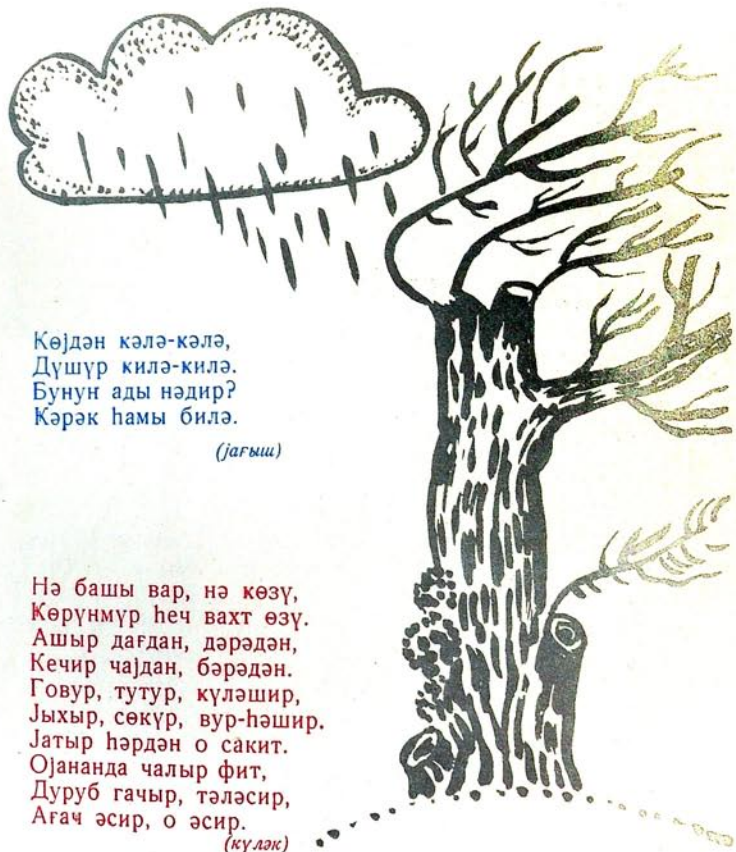 Ҝөјдән ҝәлә-ҝәлә,
Дүшүр ҝилә-ҝилә.
Бунун ады нәдир?
Ҝәрәк һамы билә.
(јағыш)
Нә башы вар, нә ҝөзү,
Ҝөрүнмүр һеч вахт өзү.
Ашыр дағдан, дәрәдән,
Кечир чајдан, бәрәдән.
Говур, тутур, ҝүләшир,
Јыхыр, сөкүр, вур-һәшир.
Јатыр һәрдән о сакит.
Ојананда чалыр фит,
Дуруб гачыр, тәләсир,
Ағач әсир, о әсир.
(күләк)